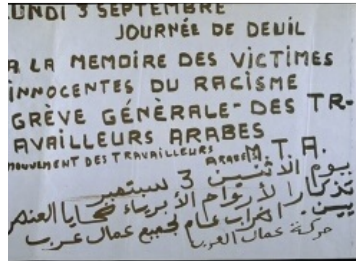 LUNDI 3 SEPTEMBRE
JOURNÉE DE DEUIL
A LA MEMOIRE DES VICTIMES
INNOCENTES DU RACISME
GRÈVE GÉNÈRALE - DES TR-
AVAILLEURS ARABES
MOUVEMENT DES TRAVAILLEURS ARABES M.T.A.
يوم الأثنين 3 سبتمبر
تذكارا لأرواح الأبرياء ضحايا العنصر
يين. اضراب عام لجميع عمال عرب
حركة عمال العرب